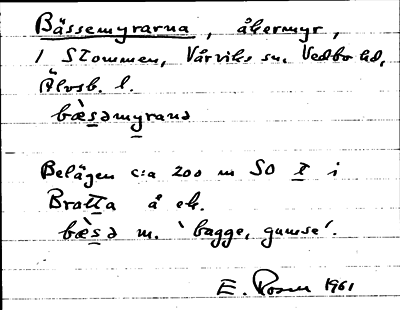 Bässemyrarna, åkermyr,
1 Stommen, Vårviks sn. Vedbo hd,
Älvsb. l.
bæ̀səmyrana
Belägen c:a 200 m SO t i
Bratta å ek.
bæ̀sə m. 'bagge, gumse'.
E. Rosén 1961